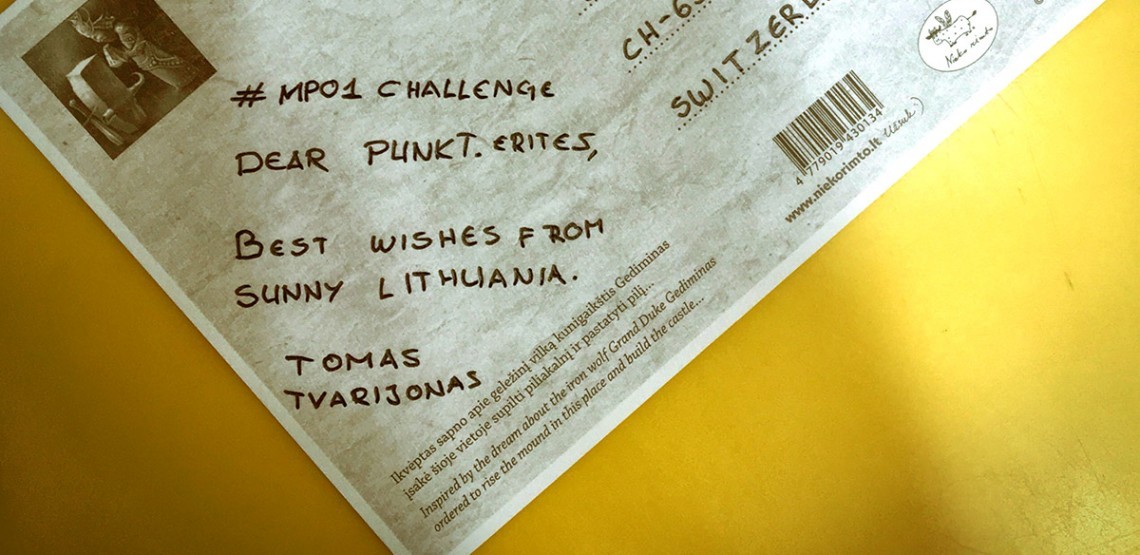 # MP01 CHALLENGE
DEAR PUNKT.ERITES,
BEST WISHES FROM
SUNNY LITHUANIA.
TOMAS
TVARIJONAS
CH-6
SWITZERL
Nieko rimto
4 779019 430134
www.niekorimto.lt
Įkvėptas sapno apie geležinį vilką kunigaikštis Gediminas
įsakė šioje vietoje supilti piliakalnį ir pastatyti pilį...
Inspired by the dream about the iron wolf Grand Duke Gediminas
ordered to rise the mound in this place and build the castle...